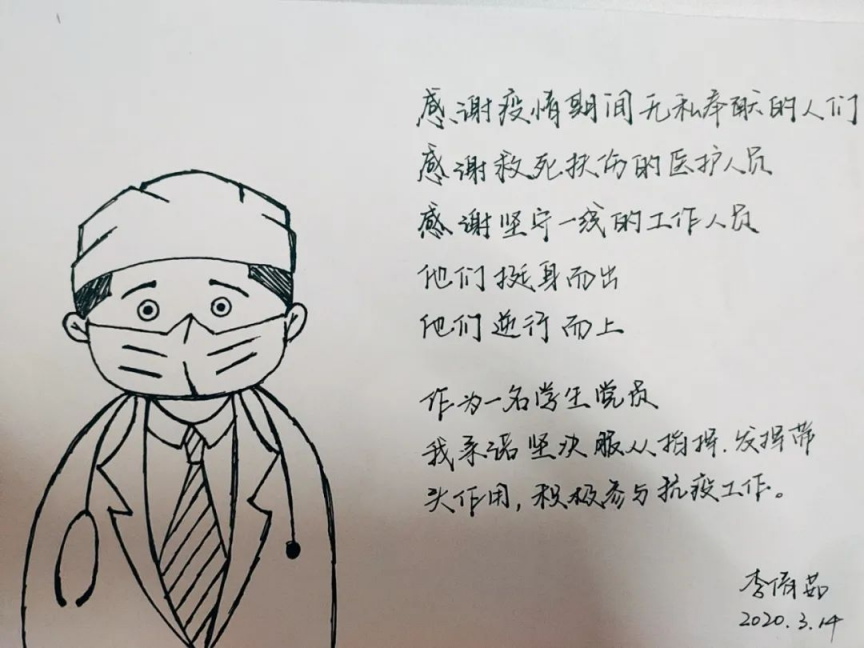 感谢疫情期间无私奉献的人们
感谢救死扶伤的医护人员
感谢坚守一线的工作人员
他们挺身而出
他们逆行而上
作为一名学生党员
我承诺坚决服从指挥.发挥带
头作用,积极参与抗疫工作。
李倩茹
2020.3.14